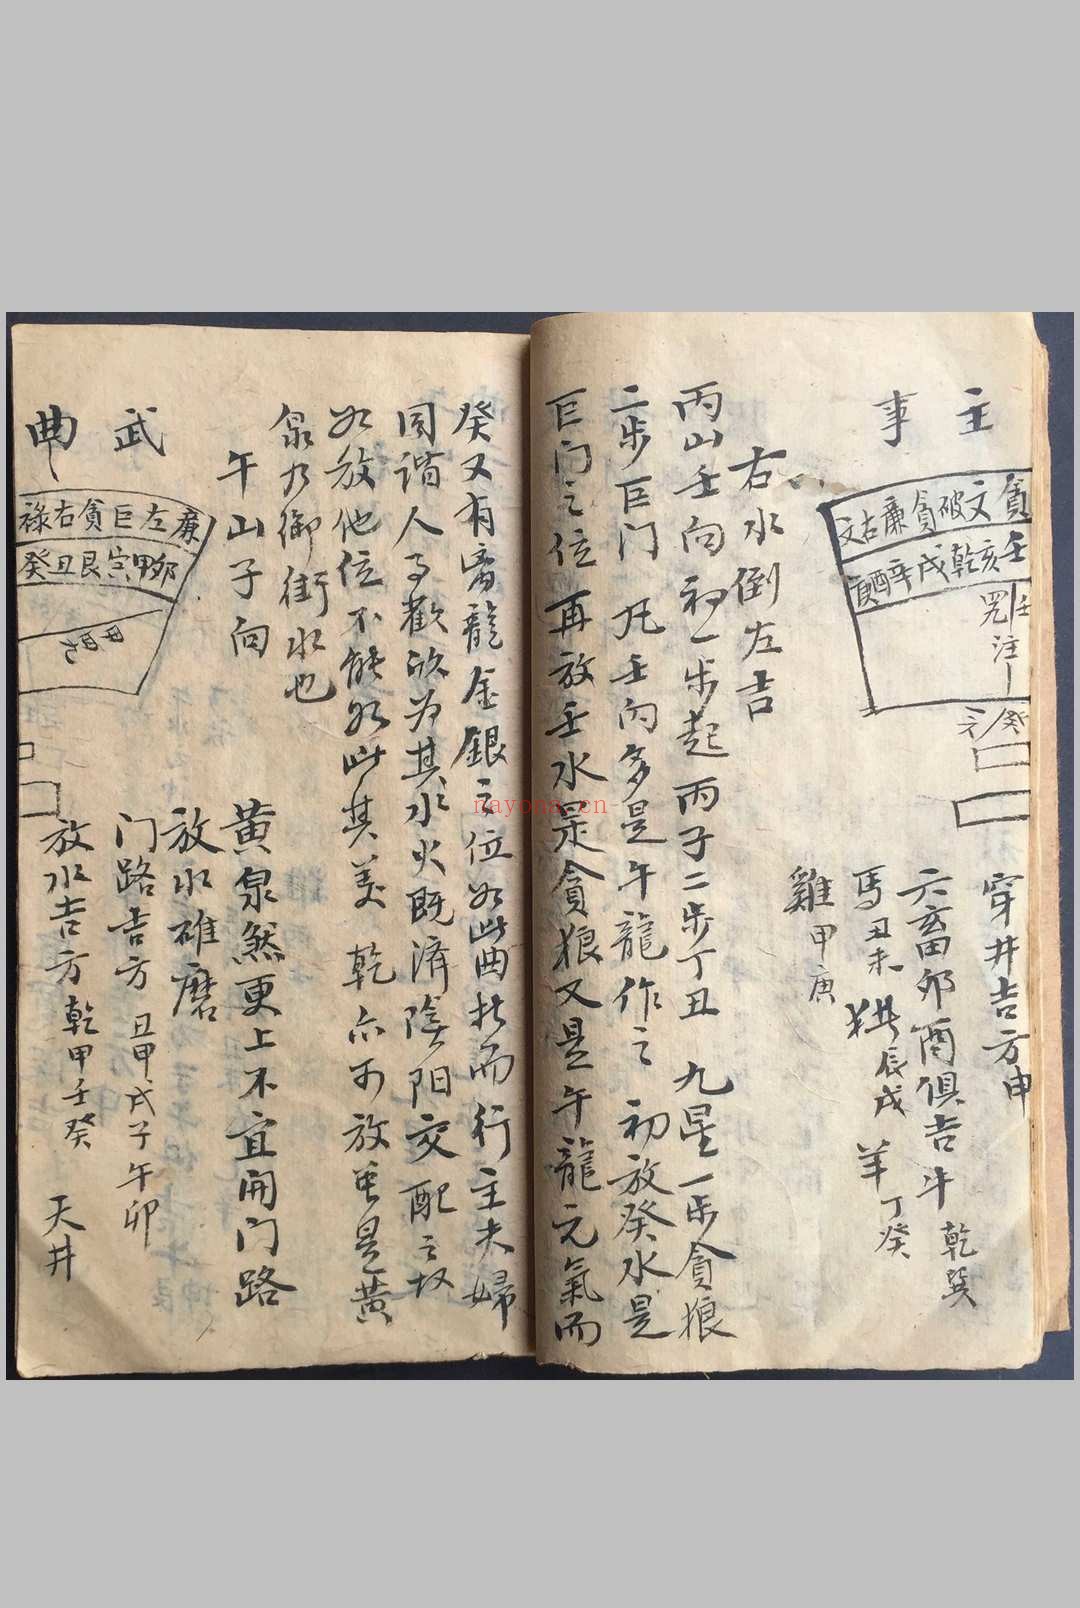 主
事
貪文破貪廉右文
壬亥乾戌辛酉庚
壬
注
癸
穿井吉方申
六畜卯酉俱吉牛乾巽
馬丑未 猪辰戌 羊丁癸
雞甲庚
右水倒左吉
丙山壬向初一步起丙子二步丁丑 九星一步貪狼
二步巨门 凡壬向多是午龍作之 初放癸水是
巨门之位 再放壬水是貪狼又是午龍元氣而
癸又有 龍金銀之位如此曲折而行主夫婦
同諧人 歡欣为其水火既濟陰阳交配之故
如放他位不能如此其美 乾亦可放 是黄
泉乃御街水也
午山子向
武
曲
廉左巨貪右祿
卯甲寅艮丑癸
黄泉煞更上不宜開门路
放水碓磨
门路吉方 丑甲戌子午卯
放水吉方乾甲壬癸 天井
nayona.cn